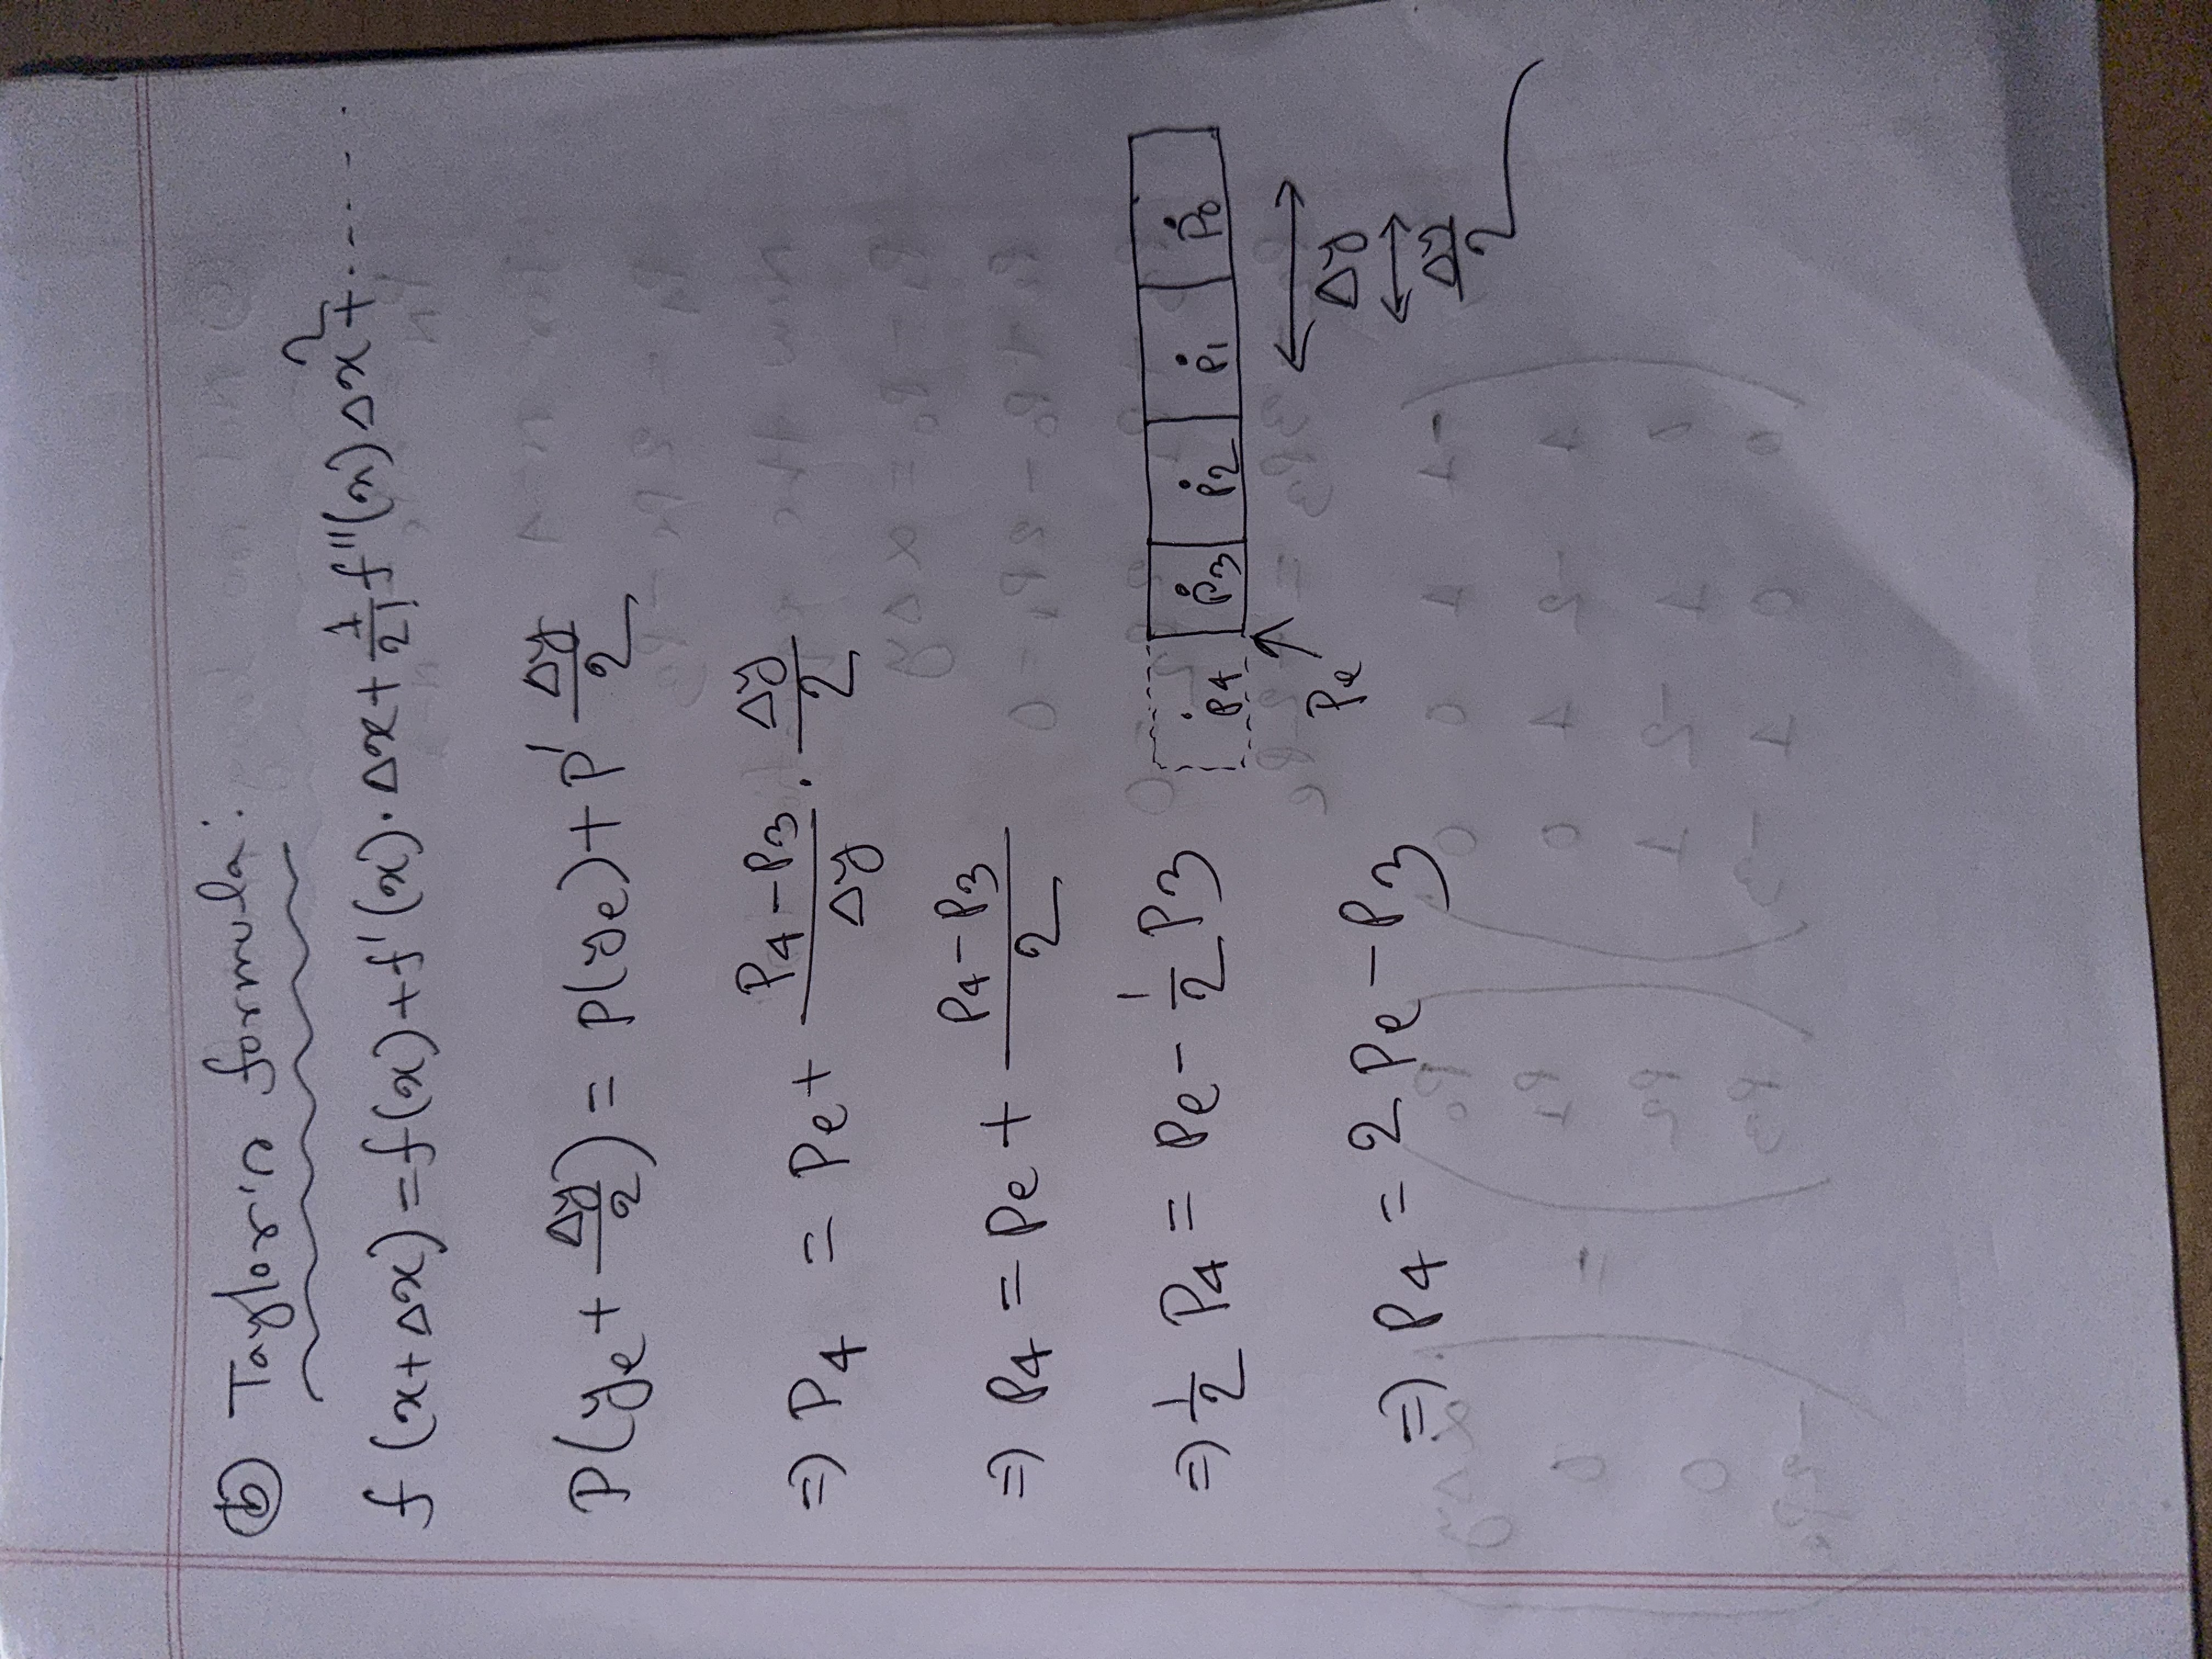 ⓑ Taylor's formula:
f(x+Δx)=f(x)+f'(x)·Δx+1/2! f''(x)Δx²+......
P(y_e+Δy/2)=P(y_e)+P' Δy/2
⇒ P₄ = Pe+ (P₄-P₃)/Δy · Δy/2
⇒ P₄=Pe+ (P₄-P₃)/2
⇒ 1/2 P₄=Pe-1/2 P₃
P₄ P₃ P₂ P₁ P₀
Pe
Δy
Δy/2
⇒ P₄=2Pe-P₃